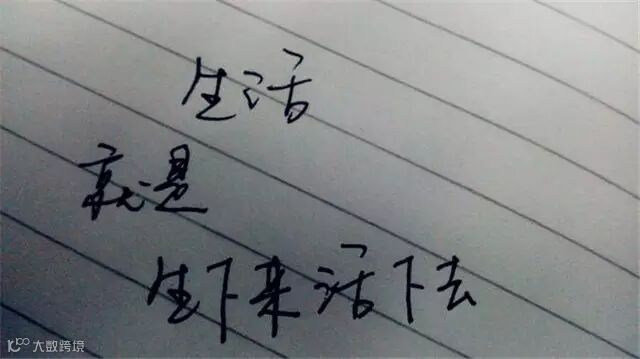 生活
就是
生下来活下去
大数跨境